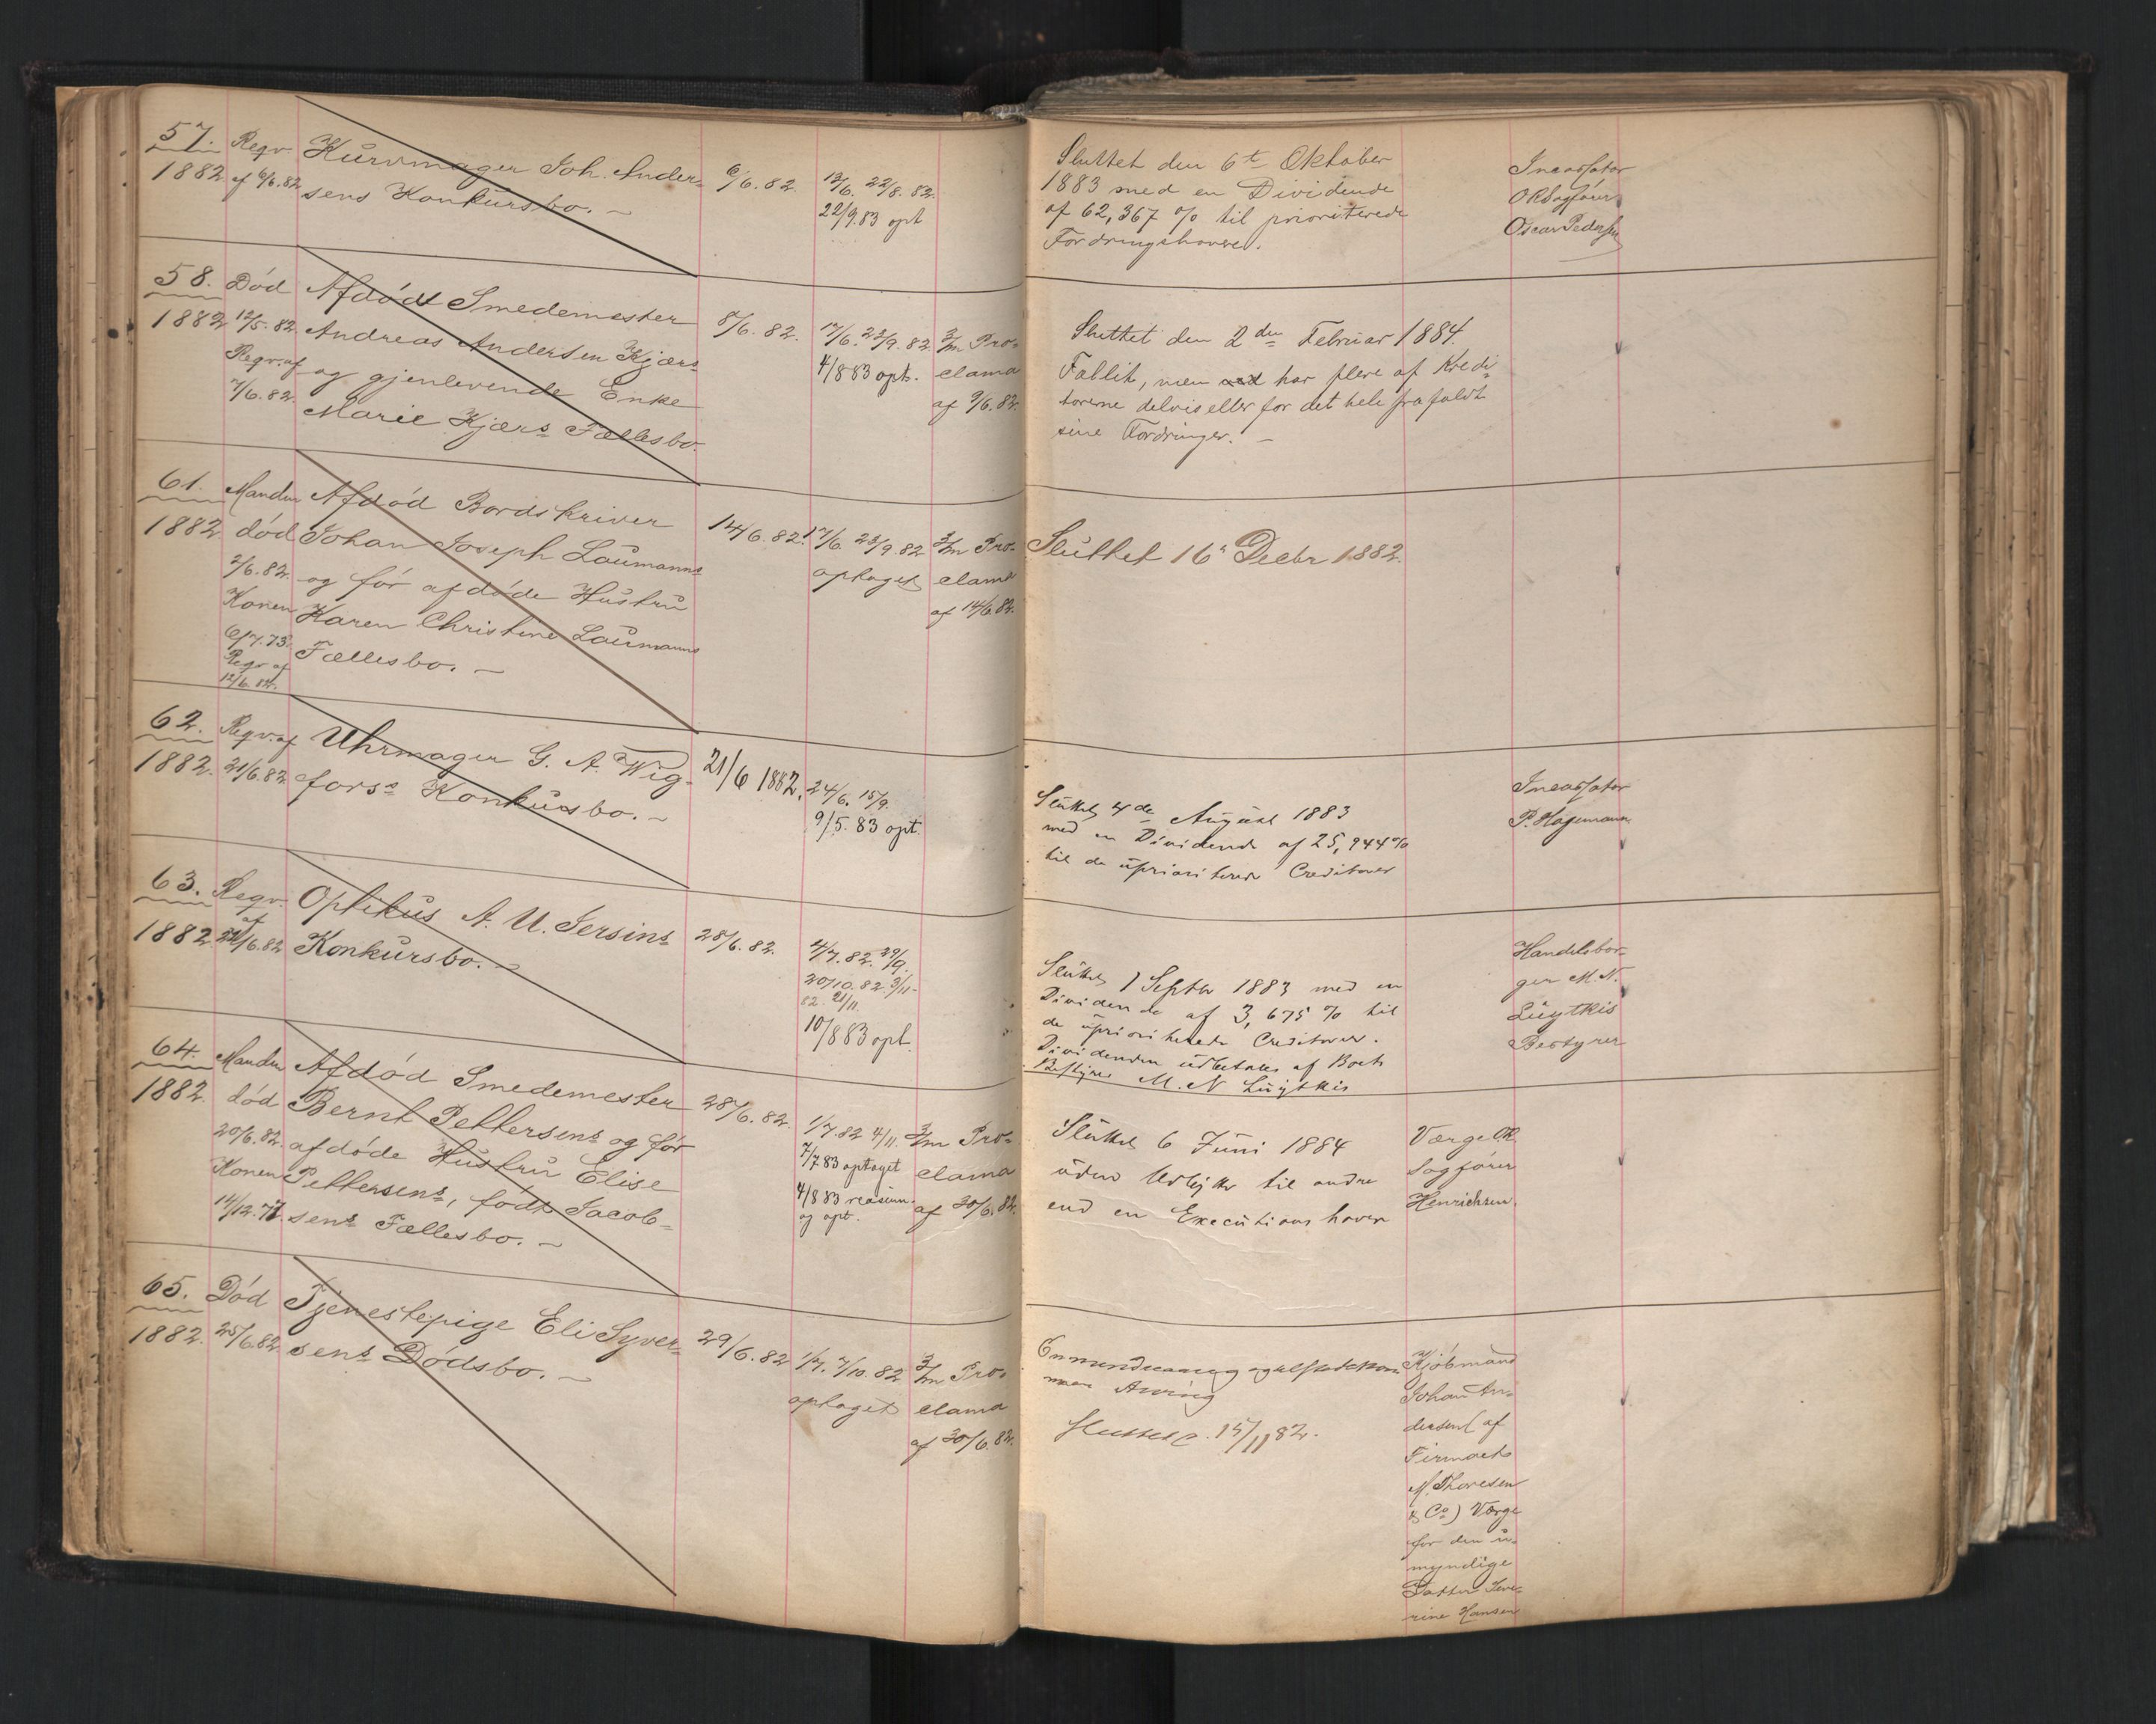 57. Reqv. Kurvmager Joh. Ander- 6/6. 82. 13/6. 22/8. 82.
1882 af 6/6. 82 sens Konkursbo. 22/9. 83 opt
Sluttet den 6te Oktober
1883 med en Dividende
af 62,367 % til prioriterede
Fordringshavere.
Incassator
ORSagfører
Oscar Pedersen
58. Død Afdød Smedemester 8/6. 82. 17/6. 23/9. 82 3/m Pro-
1882 12/5. 82. Andreas Andersen Kjærs 4/8 83 opt. clama
Reqv. af og gjenlevende Enke af 9/6. 82.
7/6. 82. Marie Kjærs Fællesbo.
Sluttet den 2den Februar 1884.
Fallit, men har flere af Kredi-
torerne delvis eller for det hele frafaldt
sine Fordringer.
61. Manden Afdød Bordskriver 14/6. 82. 17/6. 23/9. 82 3/m Pro-
1882 død Johan Joseph Laumanns optaget clama
2/6. 82. og før afdøde Hustru af 14/6. 82.
Konen Karen Christine Laumanns
6/7. 73. Fællesbo.
Reqv af
12/6. 82.
Sluttet 16 Decbr 1882.
62. Reqv. af Uhrmager G. A. Wig- 21/6 1882. 24/6. 15/9.
1882. 21/6. 82 fors Konkursbo. 9/5. 83 opt.
Sluttet 4de August 1883
med en Dividende af 25,944 %
til de uprioriterede Creditorer
Incassator
P. Hagemann
63. Reqv. Optikus A. U. Jersins 28/6. 82. 4/7. 82. 29/9.
af
1882. /6. 82 Konkursbo. 20/10. 82. 3/11-
82. 21/11.
10/8 83 opt.
Sluttet 1 Septbr 1883 med en
Dividende af 3,675 % til
de uprioriterede Creditorer.
Dividenden udbetales af Boets
Bestyrer M. N Luytkis
Handelsbor-
ger M. N.
Luytkis
Bestyrer
64. Manden Afdød Smedemester 28/6. 82. 1/7. 82 4/11. 3/m Pro-
1882. død Bernt Pettersens og før 7/7 83 optaget clama
20/6. 82. afdøde Hustru Elise 4/8 83 reasum. af 30/6. 82.
Konen Pettersens, født Jacob- og opt.
14/12. 71. sens Fællesbo.
Sluttet 6 Juni 1884
uden Udbytte til andre
end en Executionshaver
Værge OR
Sagfører
Henrichsen.
65. Død Tjenestepige Eli Syver- 29/6. 82 1/7. 7/10. 82 3/m Pro-
1882. 25/6. 82 sens Dødsbo. optaget clama
af 30/6. 82.
Sluttet d. 15/11 82.
Kjøbmand
Johan An-
dersen (af
Firmaet
M. Thoresen
& Co) Værge
for den u-
myndige
Datter Seve-
rine Hansen